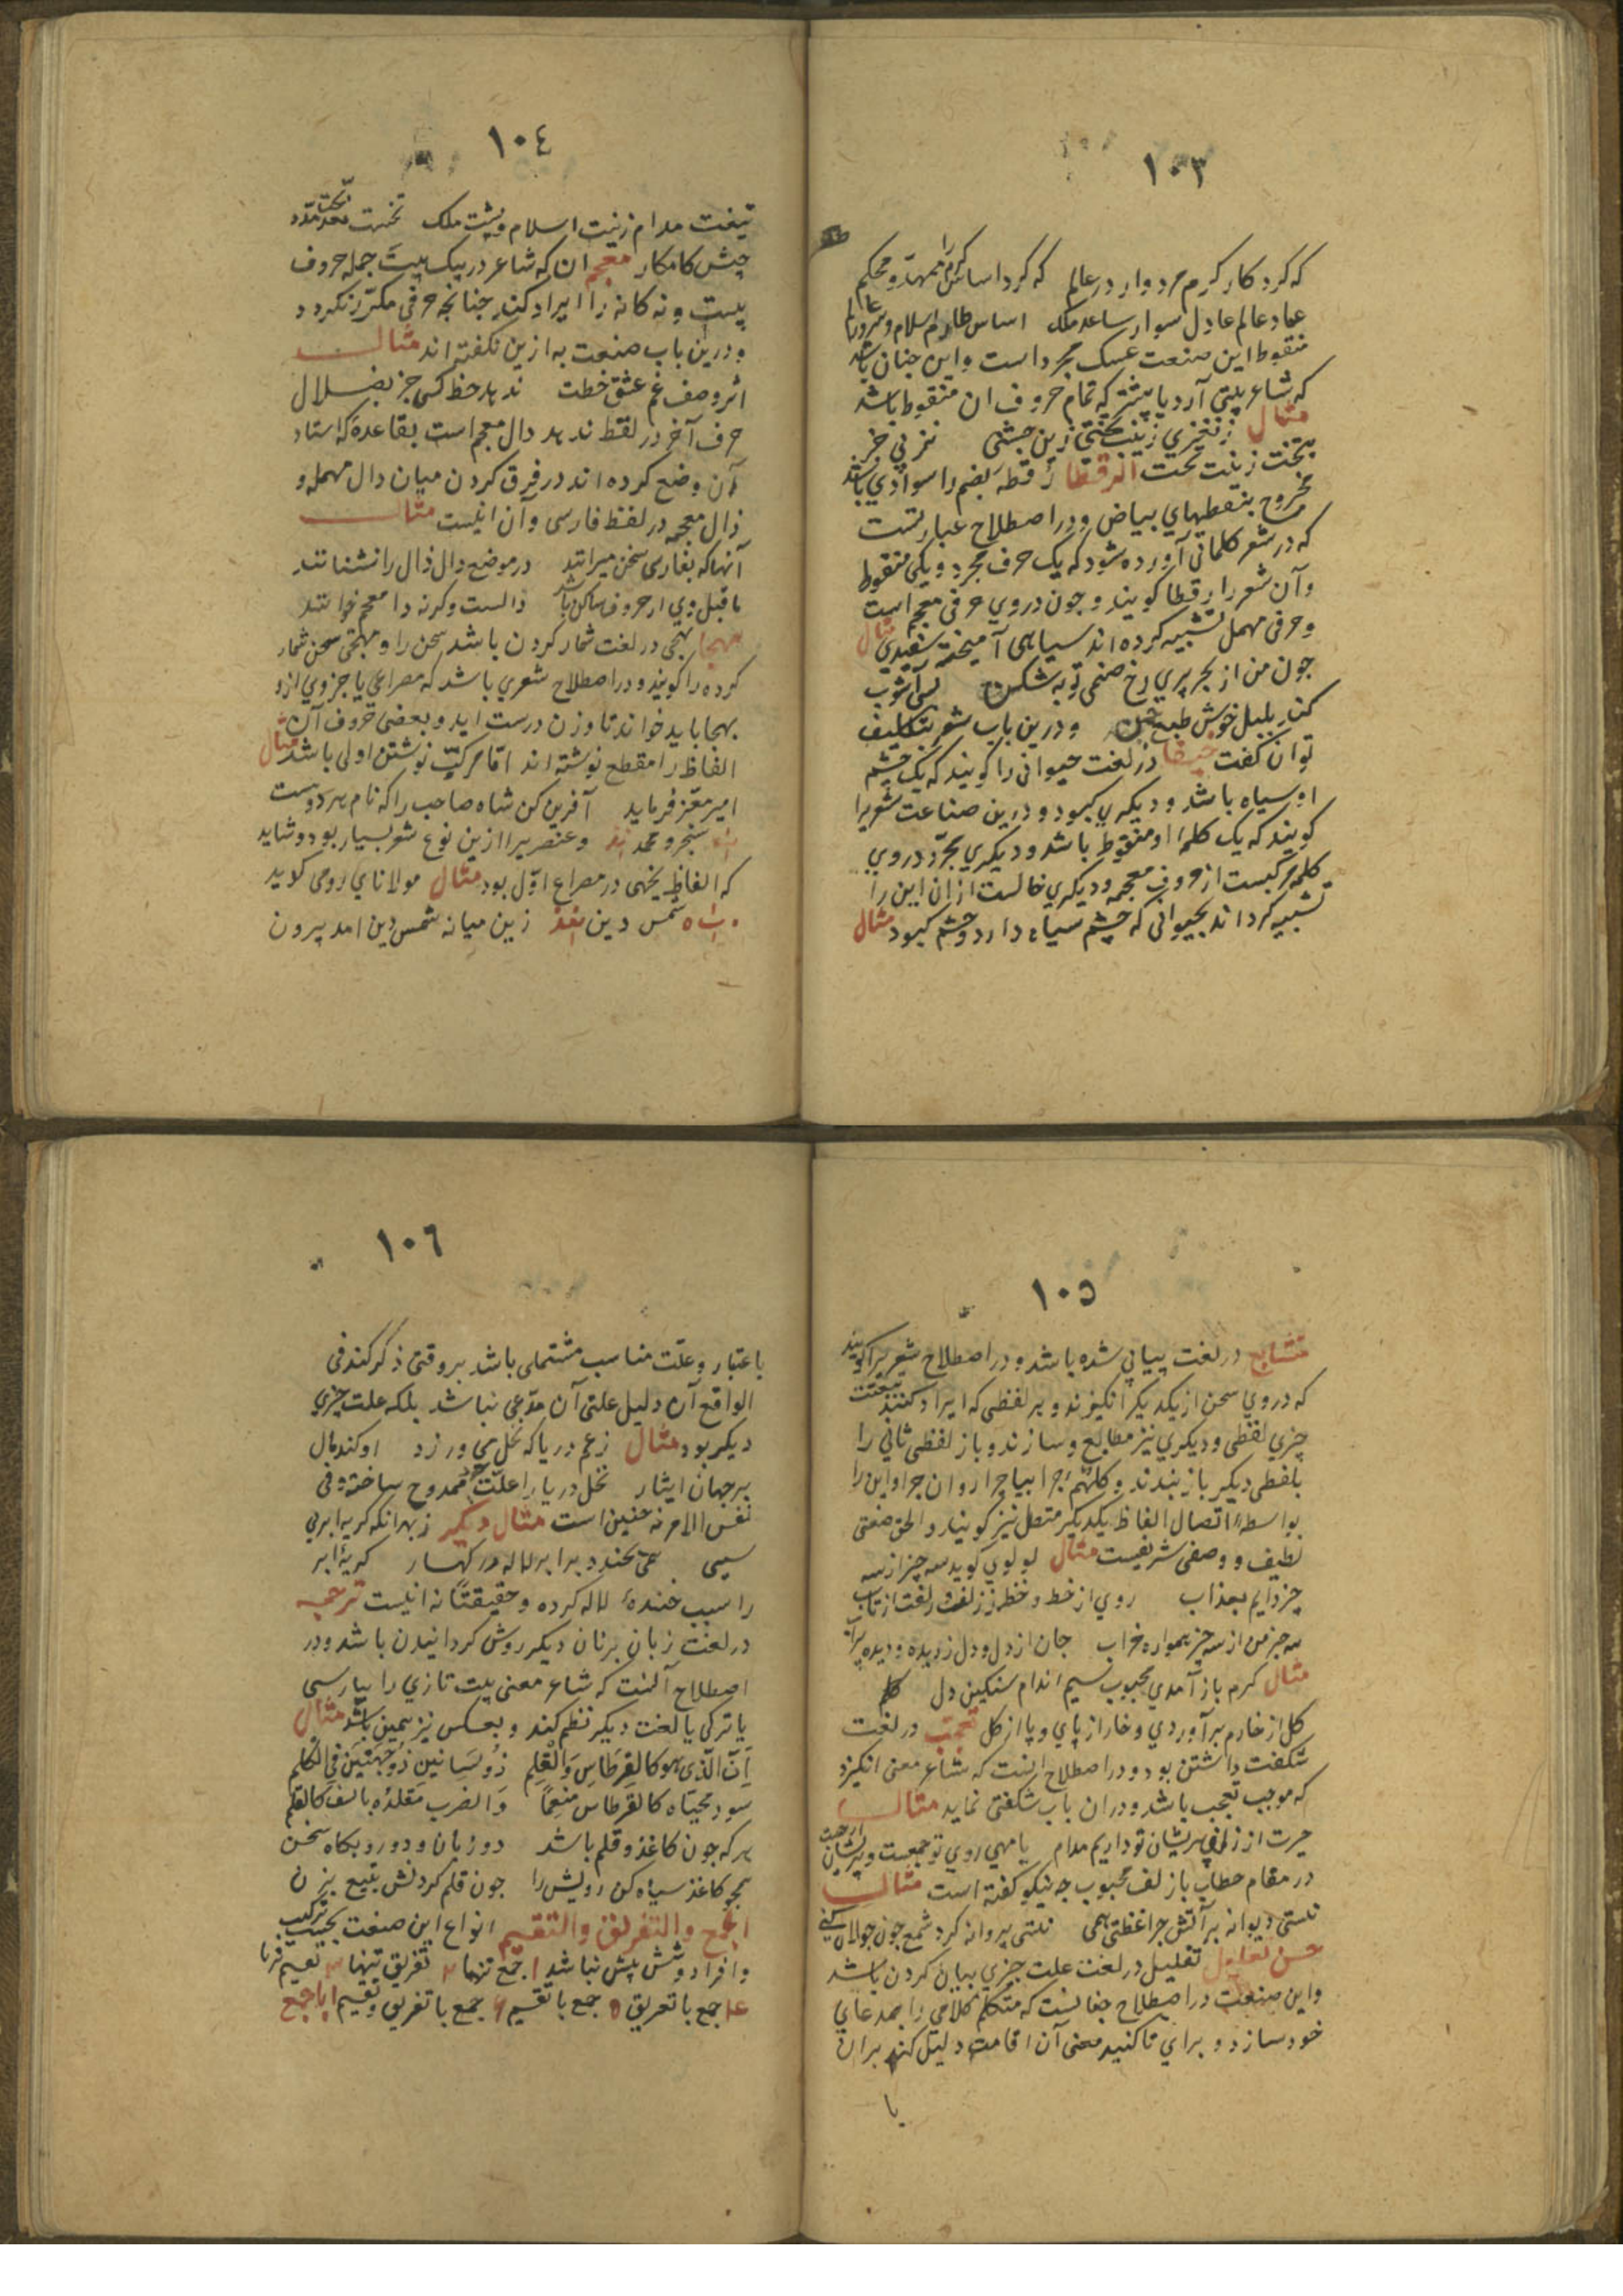 ١٠٣
که کرد کار کرم مردوار در عالم که کرد اساس کرم را ممهد و محکم
عماد عالم عادل سوار ساعد ملک اساس طارم اسلام و سرور عالم
منقوط این صنعت عکس مجرد است و این چنان باشد
که شاعر بیتی آرد یا بیشتر که تمام حروف ان منقوط باشد
مثال زین جشنی
بتخت زینت تخت الرقطا رقطه بضم را سوادی باشد
ممزوج بنقطهای بیاض و در اصطلاح عبارتست
که در شعر کلماتی آورده شود که یک حرف مجرد و یکی منقوط
و آن شعر را رقطا کویند و چون در وی حرفی معجم است
و حرفی مهمل تشبیه کرده اند سیاهی آمیخته سفیدی مثال
چون من از بجر پری رخ صنمی توبه شکن بس آشوب
کند بلبل خوش طبع و درین باب شعر بتکلیف
توان کفت خیفا در لغت حیوانی را کویند که یک چشم
او سیاه باشد و دیکری کبود و درین صناعت شعریرا
کویند که یک کلمه او منقوط باشد و دیکری مجرد در وی
کلمه مرکبست از حروف معجمه و دیکری خالست از ان این را
تشبیه کرد اند بحیوانی که چشم سیاه دارد و چشم کبود مثال
١٠٤
تیغت مدام زینت اسلام و پشت ملک تختت ممهد
جیش کامکار معجم ان که شاعر در یک بیت جمله حروف
بیست و نه کانه را ایراد کند جنانچه حرفی مکرر نکردد
و درین باب صنعت به ازین نکفته اند مثال
اثر وصف غم عشق خطت ندهد حظ کسی جز بضلال
حرف آخر در لفظ ندهد دال معجم است بقاعدهٔ که استاد
آن وضع کرده اند در فرق کردن میان دال مهمله و
ذال معجمه در لفظ فارسی و ان اینست مثال
آنها که بفارسی سخن میرانند در موضع دال ذال را ننشانند
ماقبل وی ار حروف ساکن باشد دالست وکرنه ذا معجم خوانند
مهجا تهجی در لغت شمار کردن باشد سخن را و مهجی سخن شمار
کرده را کویند و در اصطلاح شعری باشد که مصراعی یا جزوی ازو
بهجا باید خواند تا وزن درست اید و بعضی حروف آن
الفاظ را مقطع نوشته اند اما مرکب نوشتن اولی باشد مثال
امیر معز فرماید آفرین کن شاه صاحب را که نام هر دو هست
سنجر و محمد و عنصریرا ازین نوع شعر بسیار بود و شاید
که الفاظ تهجی در مصراع اول بود مثال مولانای رومی کوید
شمس دین زین میانه شمس دین امد بیرون
١٠٥
متتابع در لغت پیاپی شده باشد و در اصطلاح شعریرا کویند
که در وی سخن از یکدیکر انکیزند و هر لفظی که ایراد کنند بتبعیت
چیزی لفظی و دیکری نیز مطابع و سازند و باز لفظی ثانی را
بلفظی دیکر باز بندند و کلهم جرا بیا چرا روان جرا و این را
بواسطهٔ اتصال الفاظ یکدیکر متصل نیز کویند و الحق صفتی
لطیف و وصفی شریفست مثال لولوی کوید سه چیز از سه
چیز دایم بعذاب روی از خط و خط ز زلف و زلفت از تاب
سه چیز من از سه چیز همواره خراب جان از دل و دل ز دیده و دیده پرآب
مثال کرم باز آمدی محبوب سیم اندام سنکین دل کل
کل از خارم برآوردی و خار از پای و پا از کل تعجب در لغت
شکفت داشتن بود و در اصطلاح انست که شاعر معنی انکیزد
که موجب تعجب باشد و در ان باب شکفتی نماید مثال
حیرت از زلف پریشان تو داریم مدام با مهی روی تو جمعیت و پریشان از چیست
در مقام خطاب باز لف محبوب چه نیکو کفته است مثال
نیستی دیوانه بر آتش چرا غلطی همی نیستی پروانه کرد شمع چون جولان کنی
حسن تعلیل تعلیل در لغت علت چیزی بیان کردن باشد
و این صنعت در اصطلاح جنانست که متکلم کلامی را بمدعای
خود سازد و برای تاکید معنی آن اقامت دلیل کند بران
با
١٠٦
باعتبار و علت مناسب مشتملی باشد بروقتی ذکر کند فی
الواقع آن دلیل علتی آن مدعی نباشد بلکه علت چیزی
دیکر بود مثال زعم دریا که بخل می ورزد او کند مال
بر جهان ایثار بخل دریا را علت جود ممدوح ساخته و فی
نفس الامر نه چنین است مثال دیکر ز بهر انکه کرید ابر بی
سببی همی بخندد برابر لاله در کهسار کریهٔ ابر
را سبب خندهٔ لاله کرده و حقیقتاً نه اینست ترجمه
در لغت زبان بزبان دیکر روش کردانیدن باشد و در
اصطلاح آنست که شاعر معنی بیت تازی را بپارسی
یا ترکی یا لغت دیکر نظم کند و بعکس نیز همین باشد مثال
اَنَّ الَّذی هو کالقِرطاسِ وَالقَلَمِ ذُو لِسَانَینِ ذُو جِهَتَینِ فِی الکَلِم
سود محیاه کالقرطاس منعماً وَ الضرب مقلده بالسف کالقلم
هر که چون کاغذ و قلم باشد دو زبان و دو رو بکاه سخن
همچو کاغذ سیاه کن رویش را چون قلم کردنش بتیغ بزن
الجمع و التفریق والتقسیم انواع این صنعت بحسب ترکیب
و افراد و شش بیش نباشد ١ جمع تنها ٢ تفریق تنها ٣ تقسیم تنها
٤ جمع با تفریق ٥ جمع با تقسیم ٦ جمع با تفریق و تقسیم اما جمع